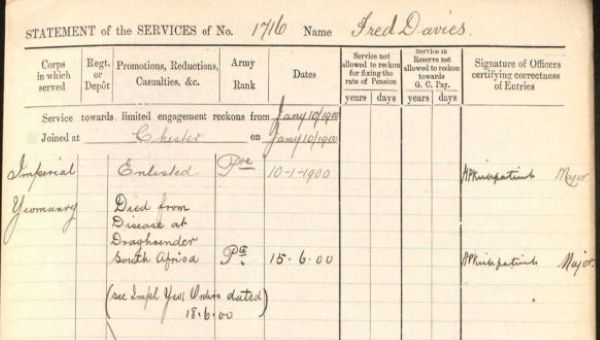 STATEMENT of the SERVICES of No. 1716 Name Fred Davies.
Corps in which served
Regt. or Depôt
Promotions, Reductions, Casualties, &c.
Army Rank
Dates
Service not allowed to reckon for fixing the rate of Pension
years days
Service in Reserve not allowed to reckon towards G. C. Pay.
years days
Signature of Officers certifying correctness of Entries
Service towards limited engagement reckons from Jany 10/1900
Joined at Chester on Jany 10/1900
Imperial Enlisted Pte 10-1-1900 Major
Yeomanry Died from
Disease at
Draghoender
South Africa Pte 15.6.00 Major.
(see Impl Yeo Orders dated
18.6.00)